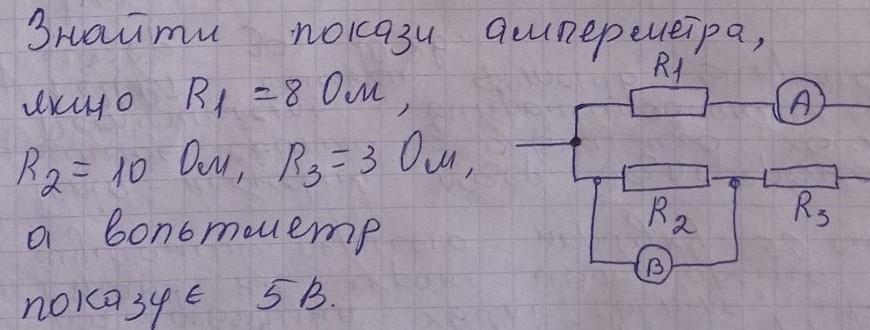 Знайти покази амперметра,
якщо R1 = 8 Ом,
R2 = 10 Ом, R3 = 3 Ом,
а вольтметр
показує 5 В.
R1
A
R2
R3
В